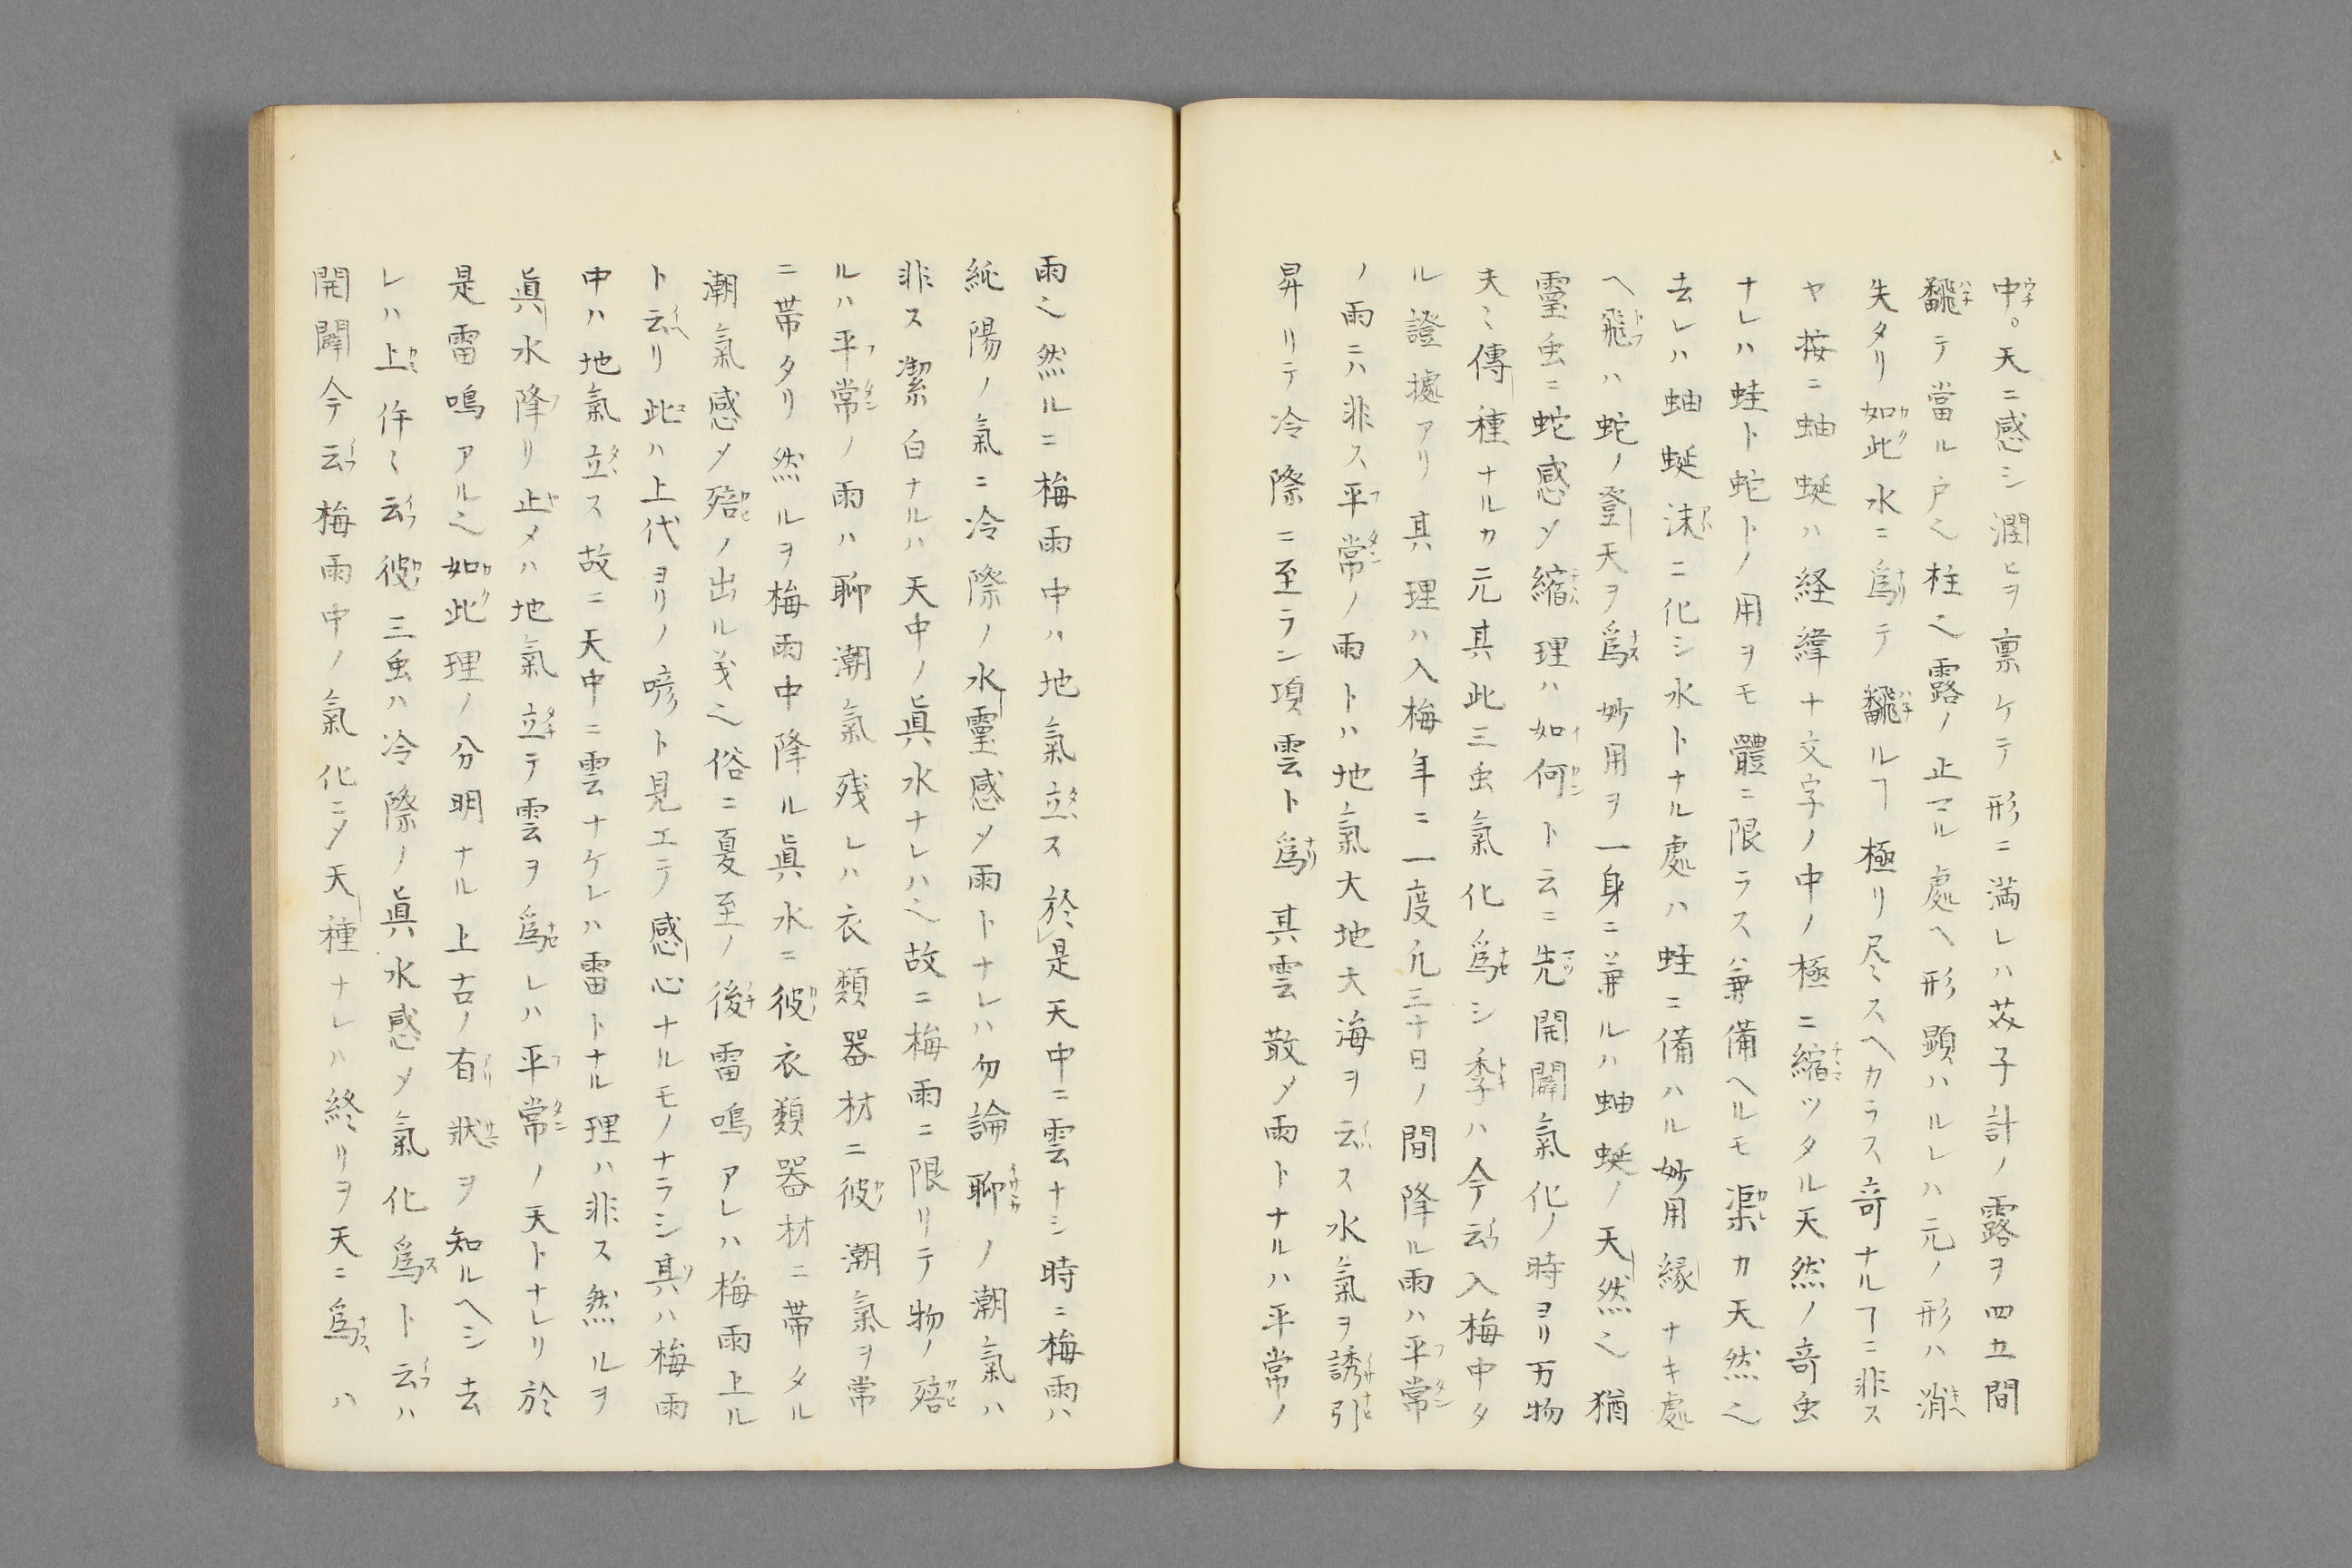 中。天ニ感シ潤ヒヲ稟ケテ形ニ満レハ芥子計ノ露ヲ四五間
飜テ當ル戸之柱之露ノ止マル處ヘ形顕ハルレハ元ノ形ハ消
失タリ如此水ニ爲テ飜ルヿ極リ尽スヘカラス竒ナルヿニ非ス
ヤ按ニ蚰蜒ハ経緯十文字ノ中ノ極ニ縮ツタル天然ノ竒虫
ナレハ蛙ト蛇トノ用ヲモ體ニ限ラス兼備ヘルモ渠カ天然之
去レハ蚰蜒沫ニ化シ水トナル處ハ蛙ニ備ハル妙用縁ナキ處
ヘ飛ハ蛇ノ登天ヲ爲妙用ヲ一身ニ兼ルハ蚰蜒ノ天然之猶
靈虫ニ蛇感〆縮理ハ如何ト云ニ先開闢氣化ノ時ヨリ万物
夫〻傳種ナルカ元其此三虫氣化爲シ季ハ今云入梅中タ
ル證據アリ其理ハ入梅年ニ一度凢三十日ノ間降ル雨ハ平常
ノ雨ニハ非ス平常ノ雨トハ地氣大地大海ヲ云ス水氣ヲ誘引
昇リテ冷際ニ至ラン項雲ト爲其雲散〆雨トナルハ平常ノ
雨之然ルニ梅雨中ハ地氣立ス於是天中ニ雲ナシ時ニ梅雨ハ
純陽ノ氣ニ冷際ノ水靈感〆雨トナレハ勿論聊ノ潮氣ハ
非ス潔白ナルハ天中ノ眞水ナレハ之故ニ梅雨ニ限リテ物ノ
ルハ平常ノ雨ハ聊潮氣残レハ衣類器材ニ彼潮氣ヲ常
ニ帯タリ然ルヲ梅雨中降ル眞水ニ彼衣類器材ニ帯タル
潮氣感〆ノ出ル義之俗ニ夏至ノ後雷鳴アレハ梅雨上ル
ト云リ此ハ上代ヨリノ諺ト見エテ感心ナルモノナラシ其ハ梅雨
中ハ地氣立ス故ニ天中ニ雲ナケレハ雷トナル理ハ非ス然ルヲ
眞水降リ止メハ地氣立テ雲ヲ爲レハ平常ノ天トナレリ於
是雷鳴アル之如此理ノ分明ナル上古ノ有狀ヲ知ルヘシ去
レハ上件〻云彼三虫ハ冷際ノ眞水感〆氣化爲ト云ハ
開闢今云梅雨中ノ氣化ニ〆天種ナレハ終リヲ天ニ爲ハ